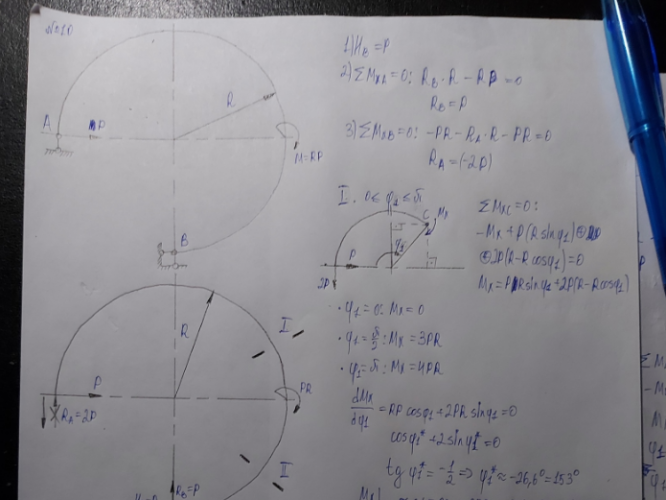 №10
A
P
R
M=RP
B
1) H_B = P
2) ΣM_XA=0: R_B·R - RP=0
R_B=P
3) ΣM_XB=0: -PR-R_A·R-PR=0
R_A=(-2P)
I. 0≤φ₁≤π
C
M_X
P
φ₁
2P
ΣM_XC=0:
-M_X+P(R sinφ₁)⊕
⊕2P(R-Rcosφ₁)=0
M_X=PR sinφ₁+2P(R-Rcosφ₁)
·φ₁=0: M_X=0
·φ₁=π/2: M_X=3PR
·φ₁=π: M_X=4PR
dM_X/dφ₁=RP cosφ₁+2PR sinφ₁=0
cosφ₁*+2sinφ₁*=0
tg φ₁*=-1/2 ⇒ φ₁*≈-26,6°=153°
R
I
P
PR
R_A=2P
II
R_B=P